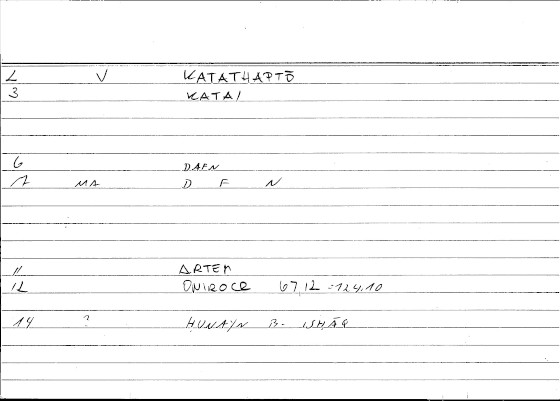 2 V KATATHAPTŌ
3 KATAI
6 DAFN
7 MA D F N
11 ARTEM
12 ONIROCR 67,12 = 124,10
14 ? ḤUNAYN B. ISḤĀQ